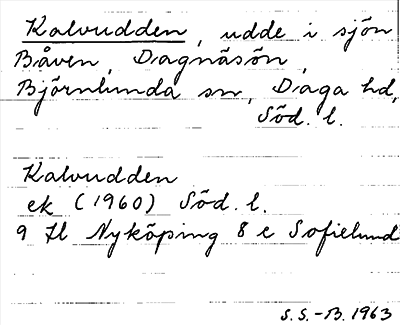 Kalvudden, udde i sjön
Båven, Dagnäsön,
Björnlunda sn, Daga hd,
Söd. l.
Kalvudden
ek (1960) Söd. l.
9 H Nyköping 8 c Sofielund
S.S.-B. 1963